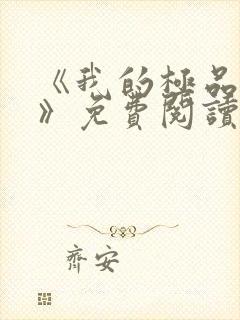 《我的極品
》免費閱讀
齊安